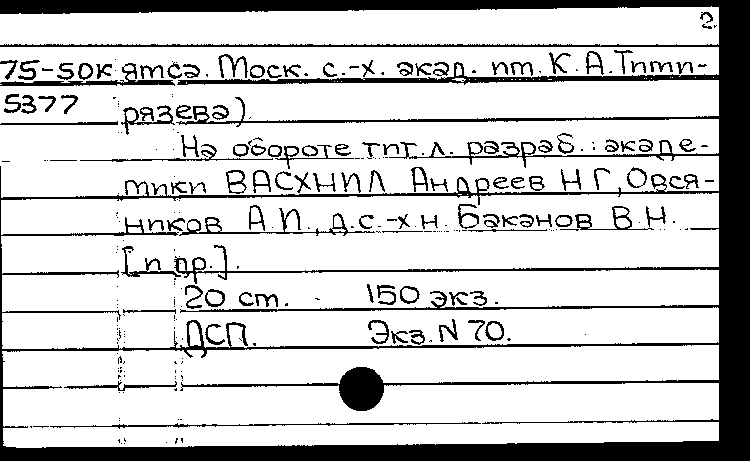 2
75-50к ятса. Моск. с.-х. акад. им. К.А.Тими-
5377 рязева)
На обороте тит.л. разраб.: акаде-
мики ВАСХНИЛ Андреев Н Г, Овся-
ников А.И., д.с.-х.н. Баканов В.Н.
[и др.].
20 см. 150 экз.
ДСП. Экз. N 70.